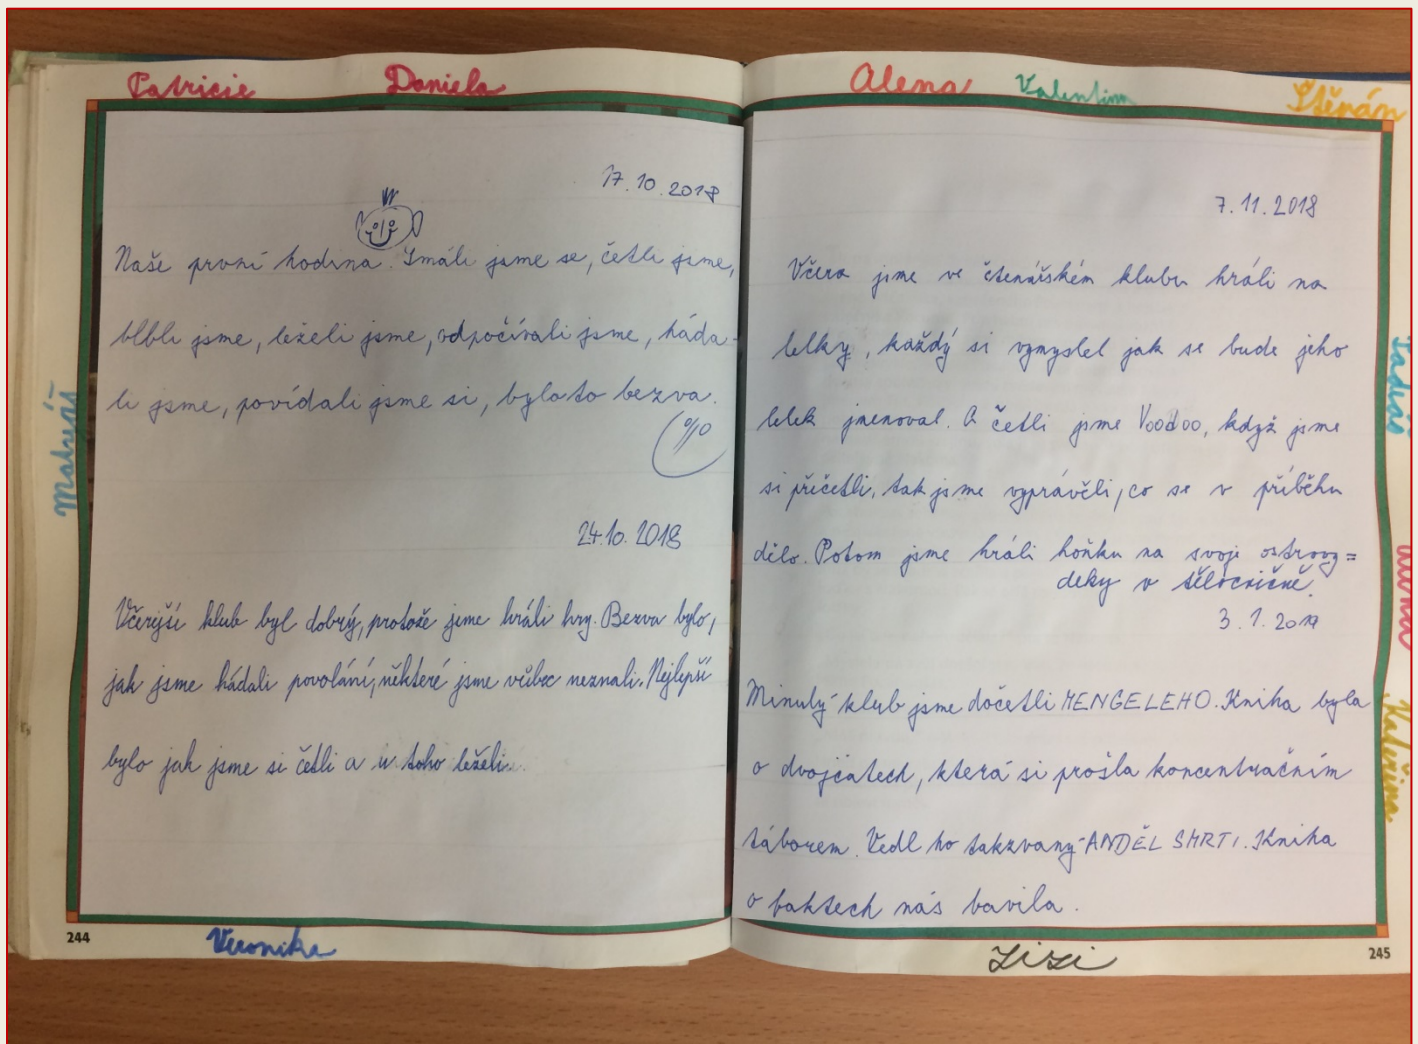 Patricie
Daniela
17.10.2018
Naše první hodina. Smáli jsme se, četli jsme,
blbli jsme, leželi jsme, odpočívali jsme, háda-
li jsme, povídali jsme si, bylo to bezva.
24.10.2018
Včerejší klub byl dobrý, protože jsme hráli hry. Bezva bylo,
jak jsme hádali povolání, některé jsme vůbec neznali. Nejlepší
bylo jak jsme si četli a u toho leželi.
Matyáš
244
Veronika
Alena
Valentina
Štěpán
7.11.2018
Včera jsme ve čtenářském klubu hráli na
lelky, každý si vymyslel jak se bude jeho
lelek jmenoval. A četli jsme Voodoo, když jsme
si přečetli, tak jsme vyprávěli, co se v příběhu
dělo. Potom jsme hráli honku na svoje ostrovy=
deky v tělocvičně.
3.1.2019
Minulý klub jsme dočetli MENGELEHO. Kniha byla
o dvojčatech, která si prošla koncentračním
táborem. Vedl ho takzvaný ANDĚL SMRTI. Kniha
o faktech nás bavila.
Kateřina
245
Zizi